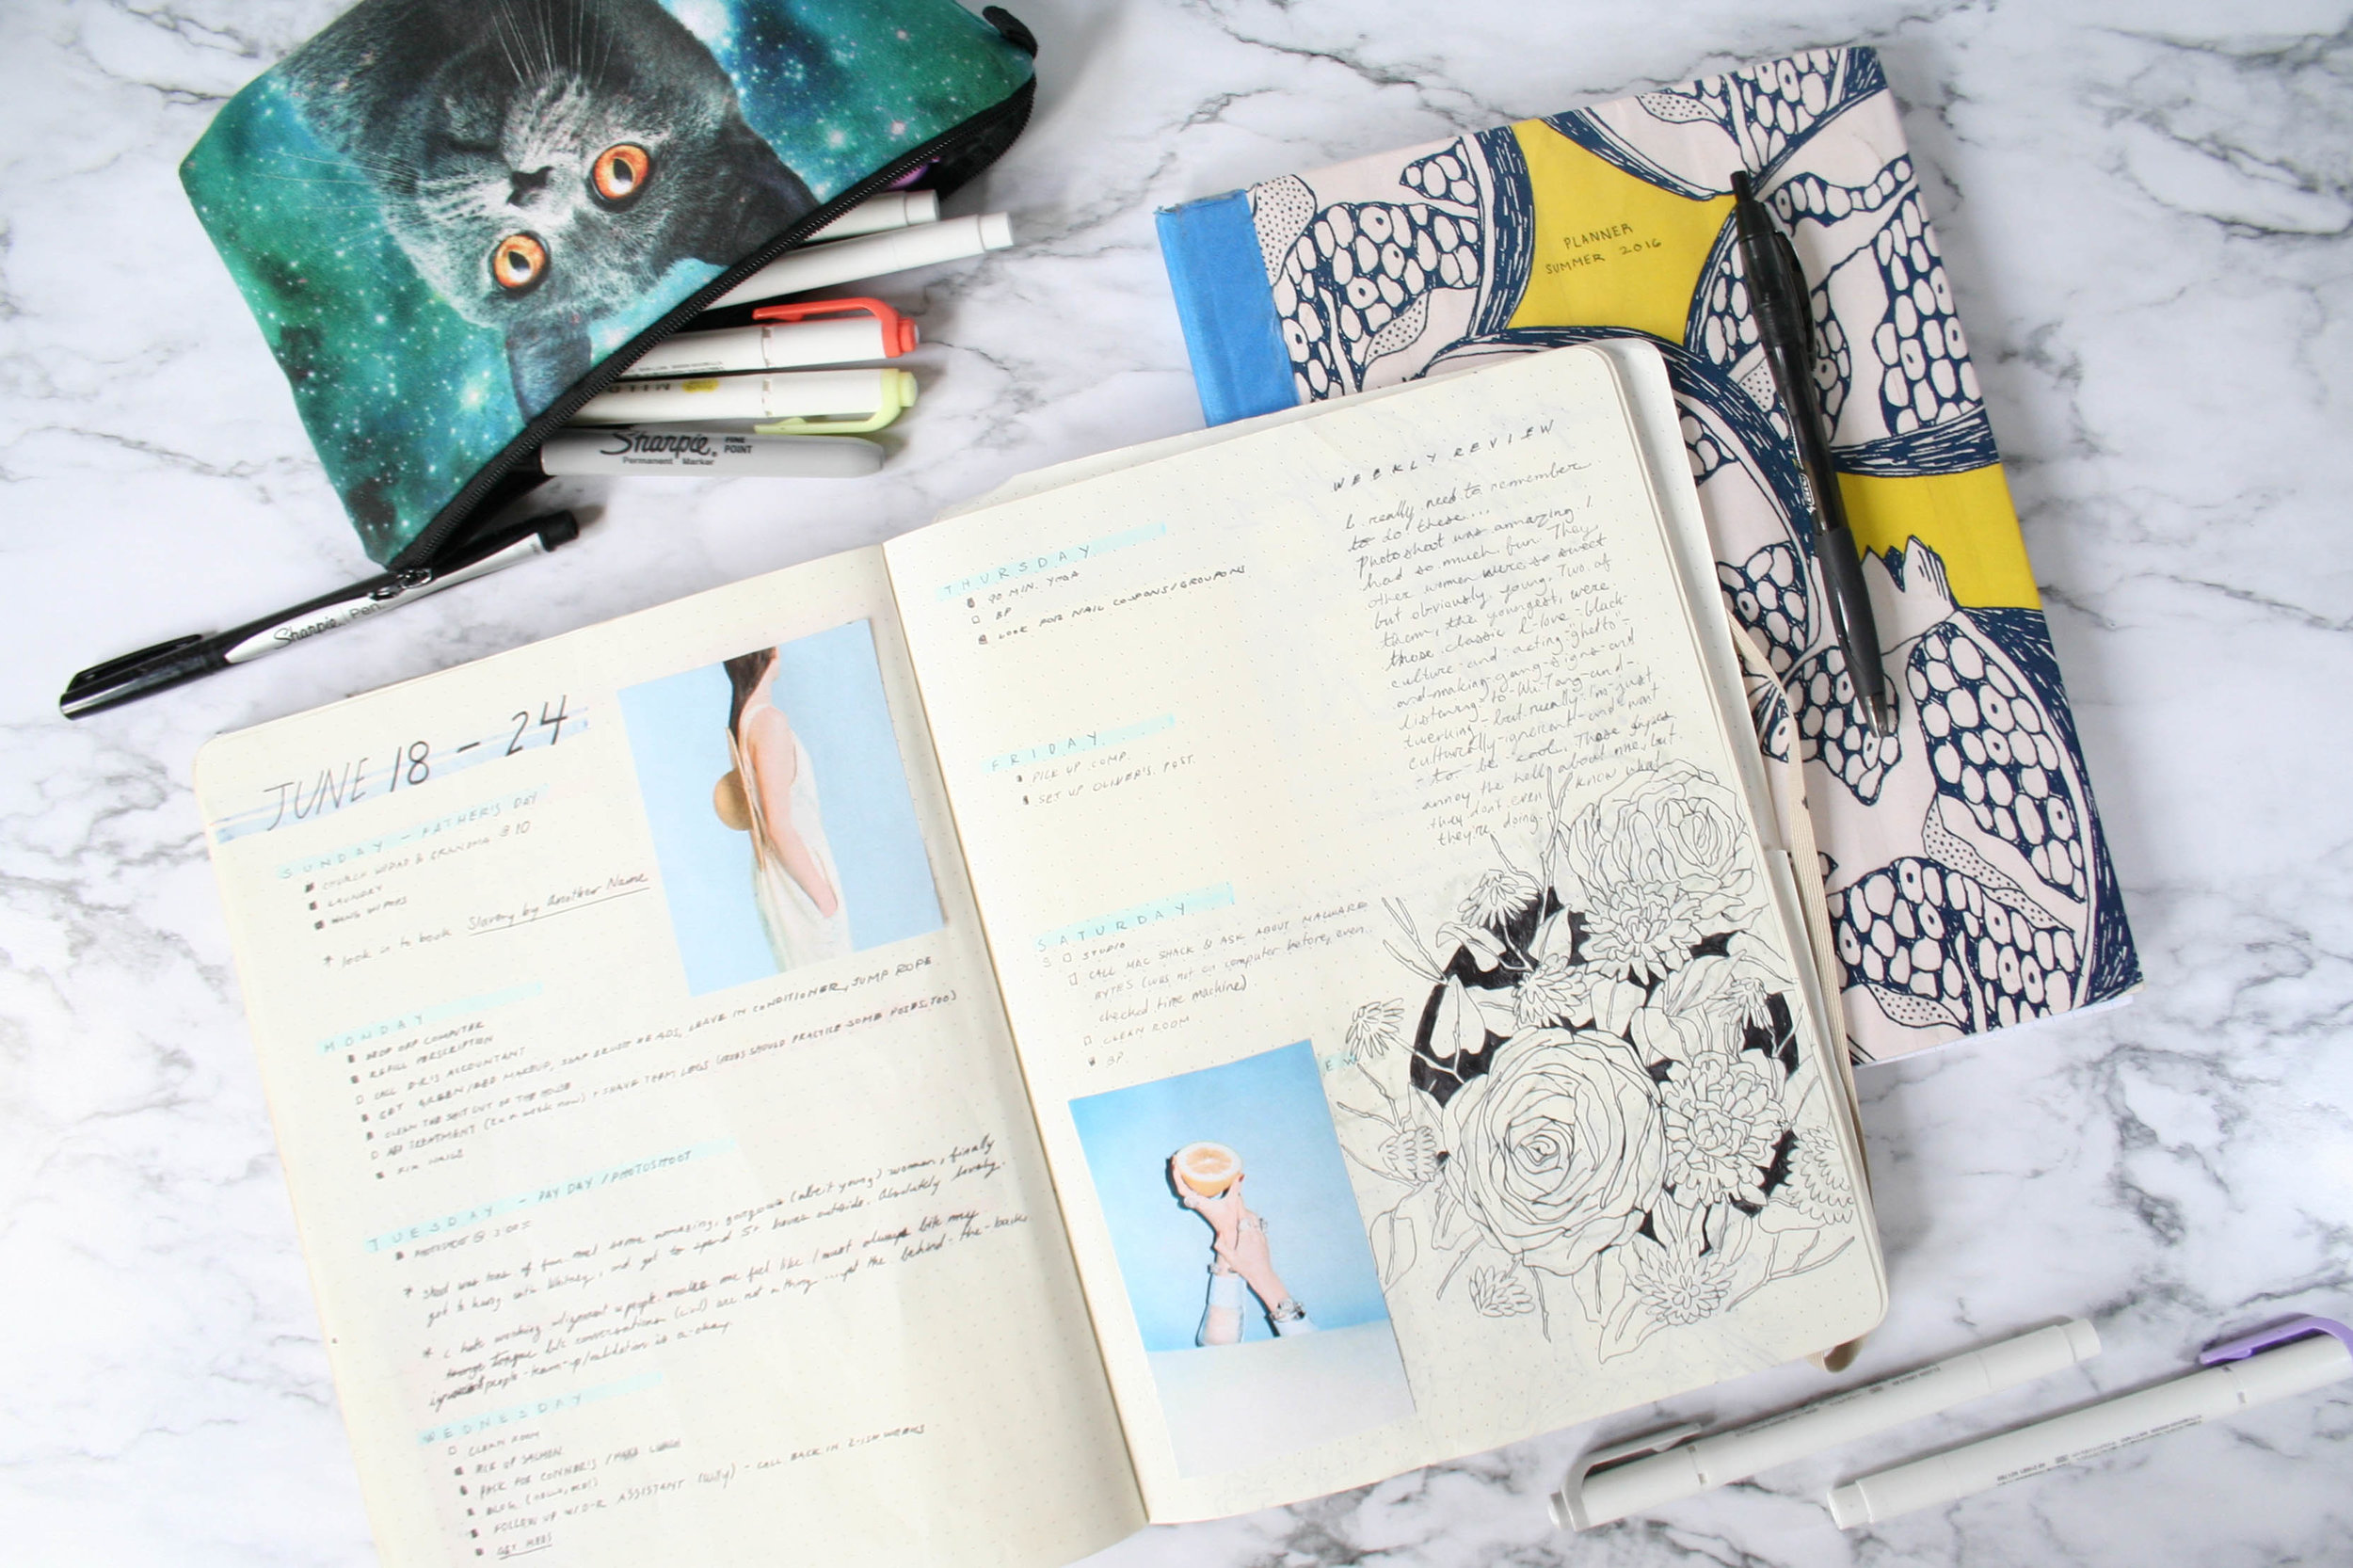 Sharpie. FINE POINT
Permanent Marker
Sharpie Pen.
PLANNER
SUMMER 2016
JUNE 18 - 24
SUNDAY - FATHER'S DAY
CHURCH W/DAD & GRANDMA @ 10
LAUNDRY
* look into book Slavery by Another Name
MONDAY
DROP OFF COMPUTER
REFILL PERSCRIPTION
CALL ACCOUNTANT
GET GREEN/RED MAKEUP, LEAVE IN CONDITIONER, JUMP ROPE
CLEAN THE SHIT OUT OF THE HOUSE
TREATMENT (2x a week now) + SHAVE LEGS (SHOULD PRACTICE SOME POSES, TOO)
TUESDAY - PAY DAY / PHOTOSHOOT
* shoot was tons of fun. met some amazing, gorgeous (albeit young) women, finally
got to hang with Whitney, and got to spend 5+ hours outside. Absolutely lovely.
* I hate working people makes me feel like I must always bite my
tongue b/c conversations (civil) are not a thing ...yet the behind-the-backs
people - team-up/validation is a-okay.
WEDNESDAY
CLEAN ROOM
PICK UP SALMON
PACK FOR CONNER'S / MAKE LUNCH
BLOG
FOLLOW UP ASSISTANT - CALL BACK IN WEEKS
GET MEDS
THURSDAY
90 MIN. YOGA
BP
LOOK FOR NAIL COUPONS/GROUPONS
FRIDAY
PICK UP COMP.
SET UP OLIVER'S POST.
SATURDAY
STUDIO
CALL MAC SHACK & ASK ABOUT MALWARE
BYTES (was not on computer before, even
checked time machine)
CLEAN ROOM
BP
WEEKLY REVIEW
I really need to remember
to do these...
Photoshoot was amazing I
had so much fun. They
other women were so sweet
but obviously young. Two of
them, the youngest, were
those classic I-love-"black"-
culture-and-acting-"ghetto"-
and-making-gang-signs-and
listening-to-Wu-Tang-and-
twerking-but really-I'm-just
culturally-ignorant-and-want
-to-be-cool. Those types
annoy the hell about me, but
they dont even know what
they're doing.